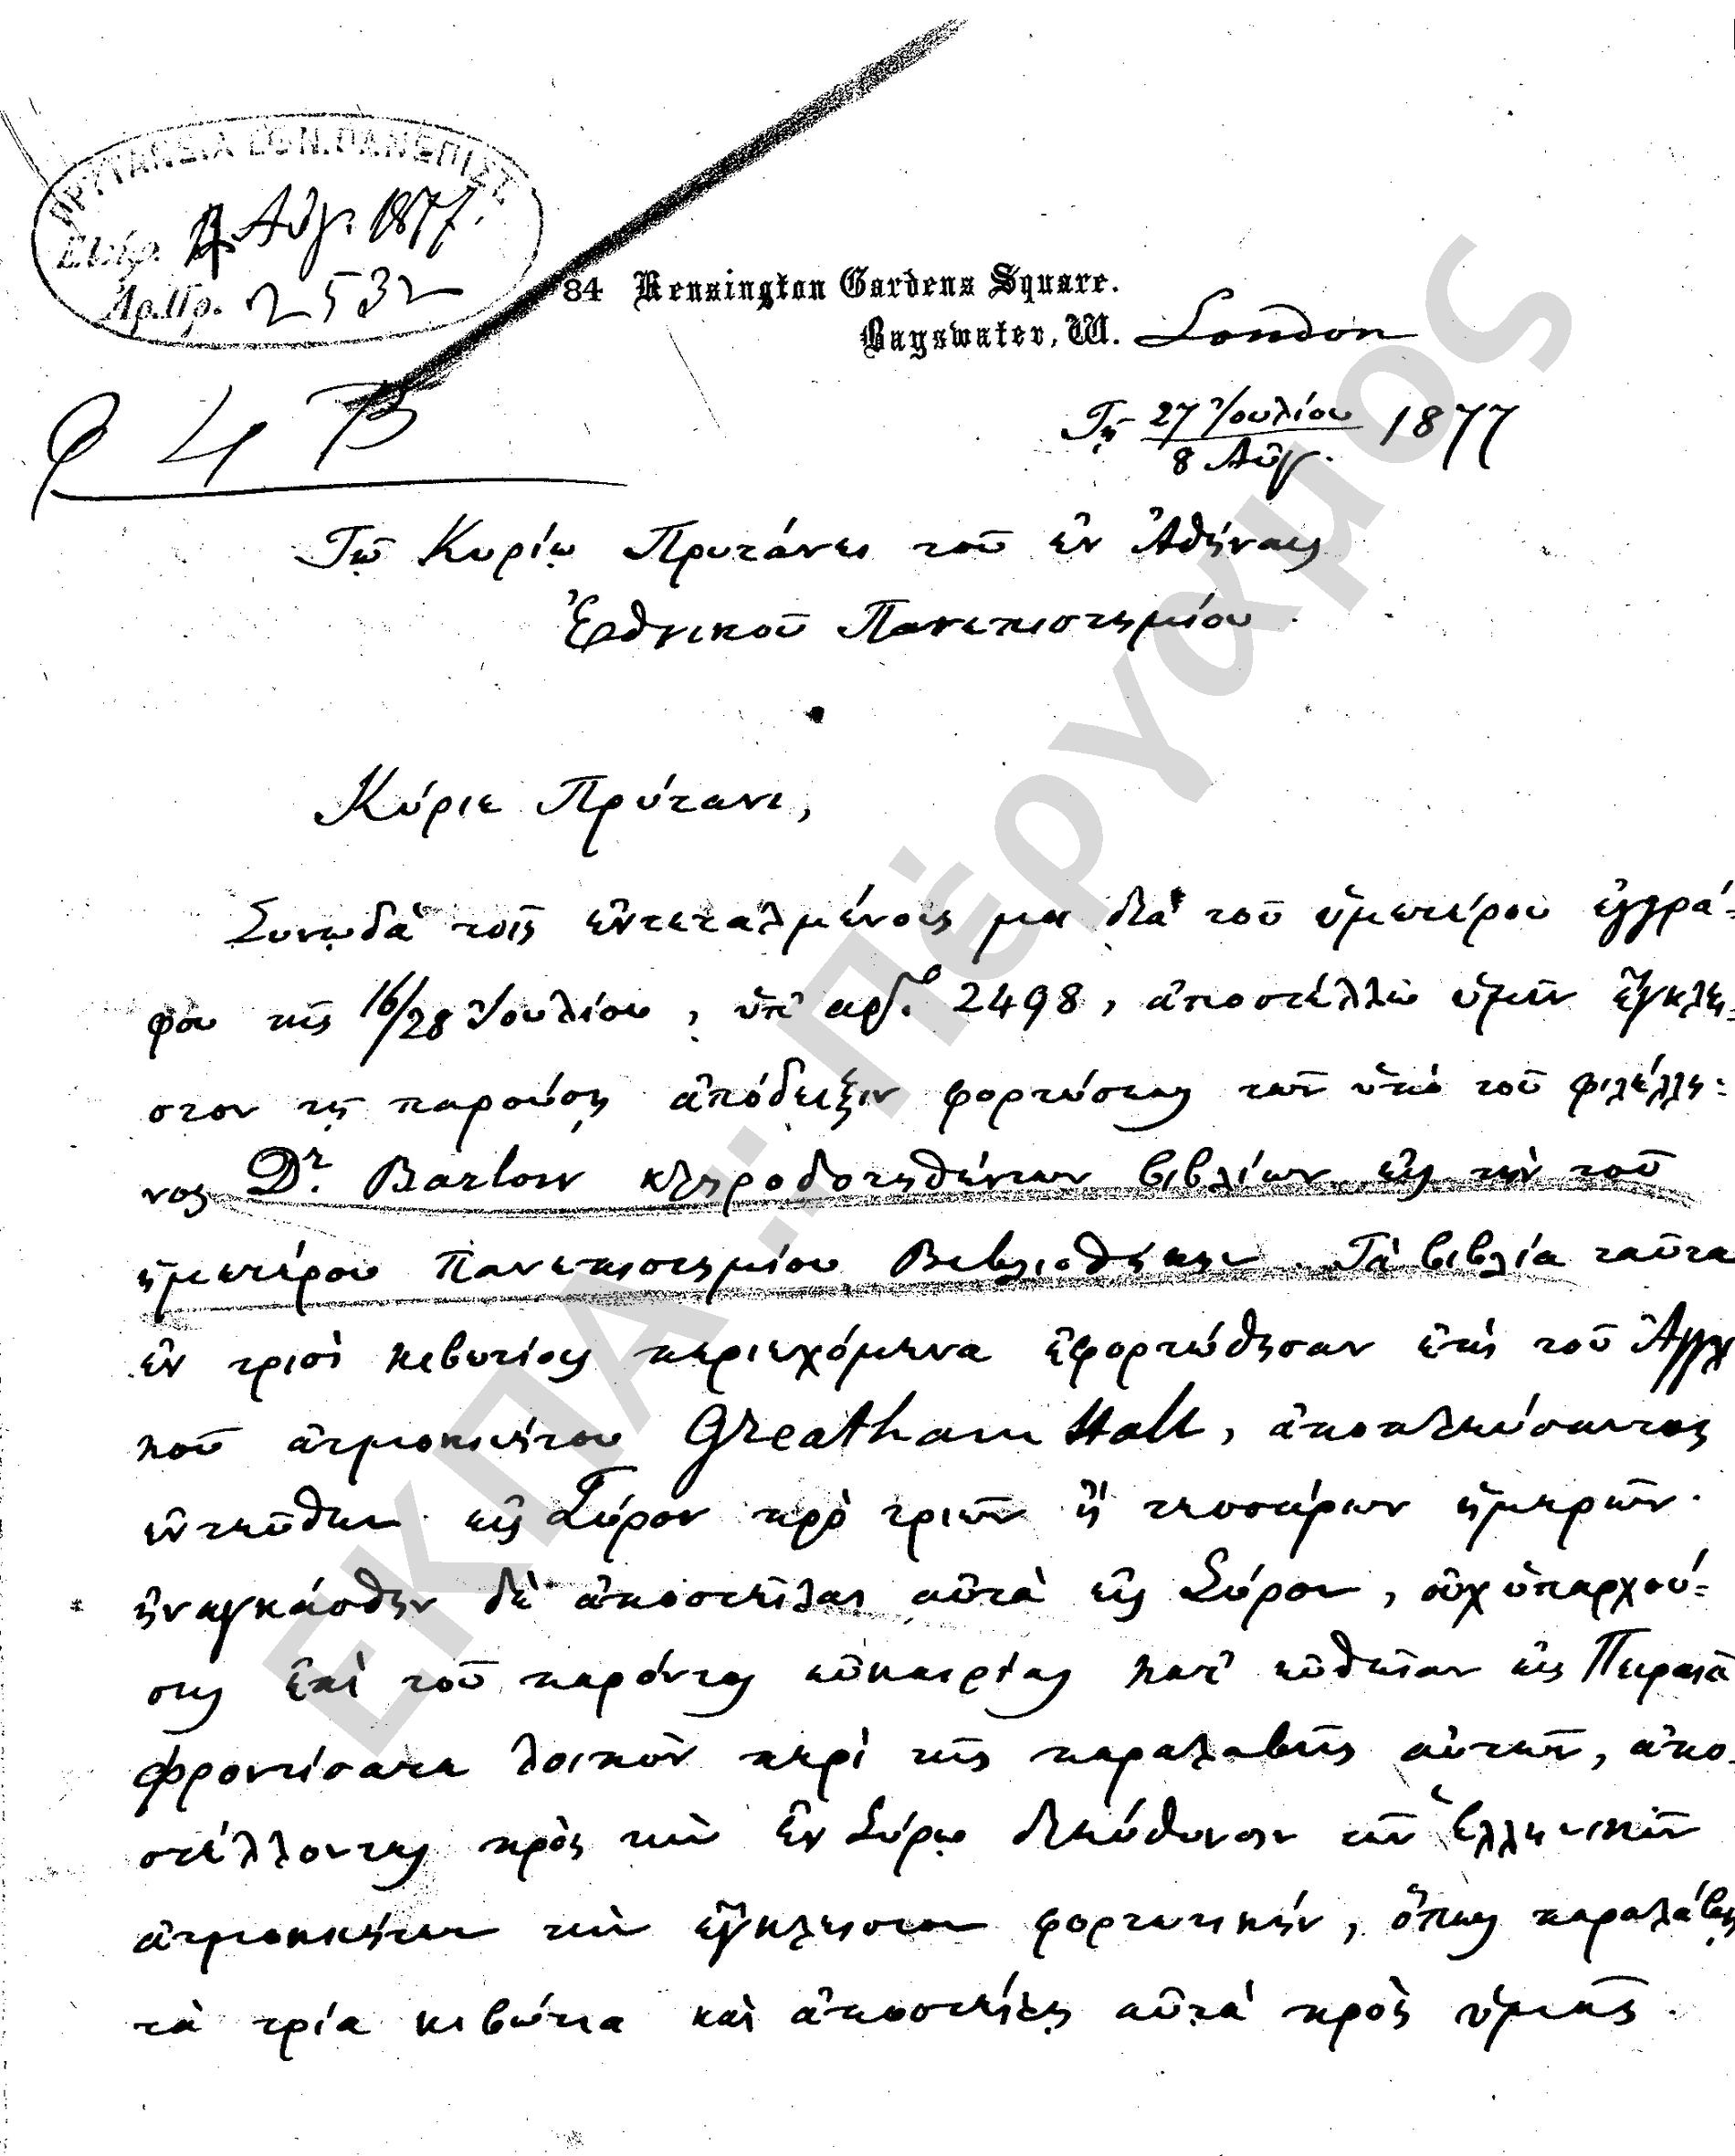 ΠΡΥΤΑΝΕΙΑ ΕΘΝ. ΠΑΝΕΠΙΣΤ.
Αὐγ. 1877.
Ἀρ. Πρ. 2532
84 Kensington Gardens Square.
Bayswater, W. London
Τῇ 27 Ἰουλίου / 8 Αὐγ. 1877
Τῷ Κυρίῳ Πρυτάνει τοῦ ἐν Ἀθήναις
Ἐθνικοῦ Πανεπιστημίου.
Κύριε Πρύτανι,
Συνῳδὰ τοῖς ἐντεταλμένοις μοι διὰ τοῦ ὑμετέρου ἐγγρά=
φου τῆς 16/28 Ἰουλίου, ὑπ' ἀρ. 2498, ἀποστέλλω ὑμῖν ἔγκλει=
στον τῇ παρούσῃ ἀπόδειξιν φορτώσεως τῶν ὑπὸ τοῦ φιλέλλη=
νος Dr. Barlow κληροδοτηθέντων βιβλίων εἰς τὴν τοῦ
ἡμετέρου Πανεπιστημίου Βιβλιοθήκην. Τὰ βιβλία ταῦτα
ἐν τρισὶ κιβωτίοις περιεχόμενα ἐφορτώθησαν ἐπὶ τοῦ Ἀγγλ
κοῦ ἀτμοκινήτου Greatham Hall, ἀποπλεύσαντος
ἐντεῦθεν εἰς Σύρον πρὸ τριῶν ἢ τεσσάρων ἡμερῶν.
ἠναγκάσθην δὲ ἀποστεῖλαι αὐτὰ εἰς Σύρον, οὐχ ὑπαρχού=
σης ἐπὶ τοῦ παρόντος εὐκαιρίας κατ' εὐθεῖαν εἰς Πειραιᾶ
φροντίσατε λοιπὸν περὶ τῆς παραλαβῆς αὐτῶν, ἀπο=
στέλλοντες πρὸς τὴν ἐν Σύρῳ διεύθυνσιν τῶν Ἑλληνικῶν
ἀτμοκινήτων τὴν ἔγκλειστον φορτωτικήν, ὅπως παραλάβῃ
τὰ τρία κιβώτια καὶ ἀποστείλῃ αὐτὰ πρὸς ὑμᾶς.
ΕΚΠΑ.: Πέργαμος